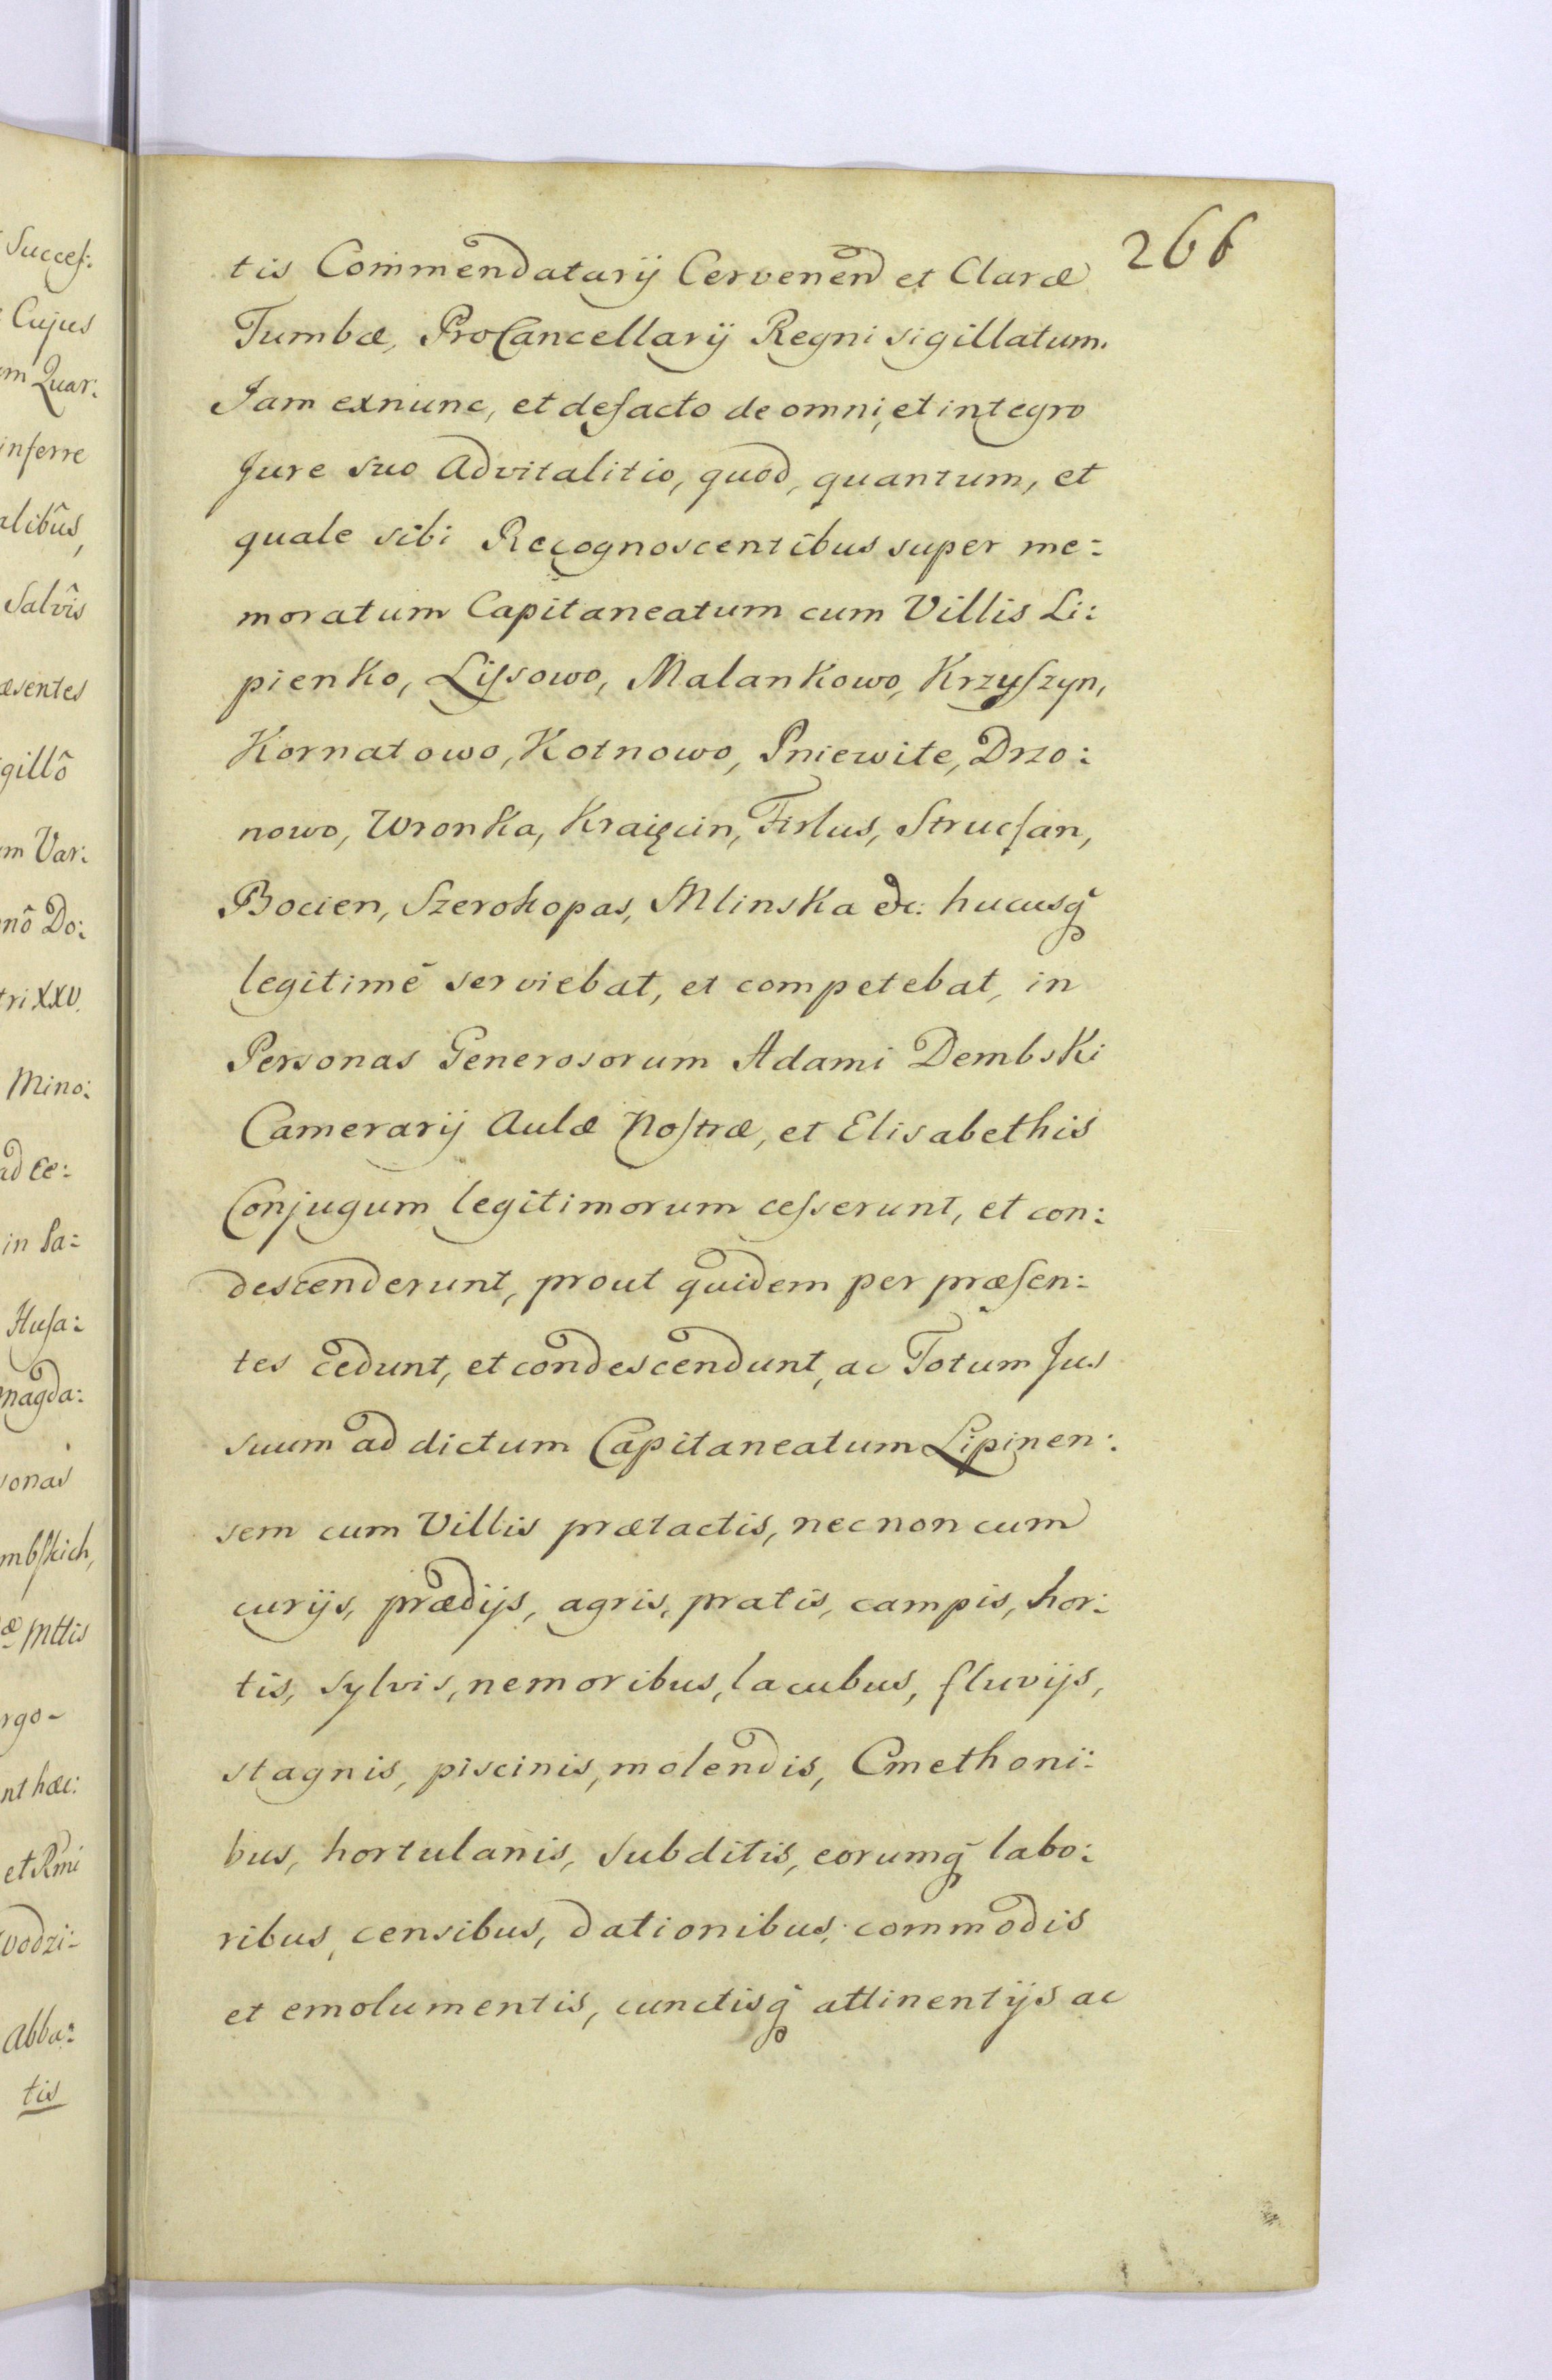 Succes:
Cujus
em Quar:
inferre
alibûs,
Salvîs
æsentes
gillô
um Var:
nô Do:
tri XXV.
Mino:
ad Ce:
in Pa:
Husa:
magda:
sonas
mbskich,
æ Mttis
rgo-
nt hæc:
et Rmi
vodzi-
Abba:
tis
266
tis Commendatarij Cervenen̄ et Claræ
Tumbæ, ProCancellarij Regni sigillatum.
Jam exnunc, et defacto de omni, et integro
Jure suo Advitalitio, quod, quantum, et
quale sibi Recognoscentibus super me:
moratum Capitaneatum cum Villis Li:
pienko, Lissowo, Malankowo, Krzyszyn,
Kornatowo, Kotnowo, Pniewite, Drzo:
nowo, Wronka, Kraięcin, Firlus, Strucfan,
Bocien, Szerokopas, Mlinska &c: hucusq̃
legitimè serviebat, et competebat, in
Personas Generosorum Adami Dembski
Camerarij Aulæ Nostræ, et Elisabethis
Conjugum legitimorum cesserunt, et con:
descenderunt, prout quidem per præsen:
tes cedunt, et condescendunt, ac Totum Jus
suum ad dictum Capitaneatum Lipinen:
sem cum Villis prætactis, necnon cum
curijs, prædijs, agris, pratis, campis, hor:
tis, Sylvis, nemoribus, lacubus, fluvijs,
stagnis, piscinis, molendis, Cmethoni:
bus, hortulanis, Subditis, eorumq̃ labo:
ribus, censibus, dationibus, commodis
et emolumentis, cunctisq̃ attinentijs ac